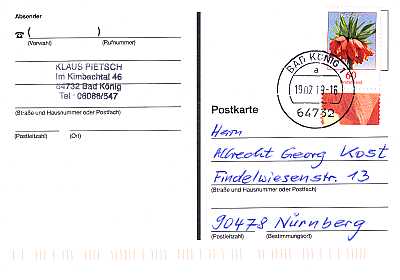 Absender
☎ ( )
(Vorwahl) (Rufnummer)
KLAUS PIETSCH
Im Kimbachtal 46
64732 Bad König
Tel 06066/547
(Straße und Hausnummer oder Postfach)
(Postleitzahl) (Ort)
BAD KÖNIG 1
a
19.07.19-16
64732
60
Postkarte
Herrn
Albrecht Georg Kost
Findelwiesenstr. 13
(Straße und Hausnummer oder Postfach)
90478 Nürnberg
(Postleitzahl) (Bestimmungsort)